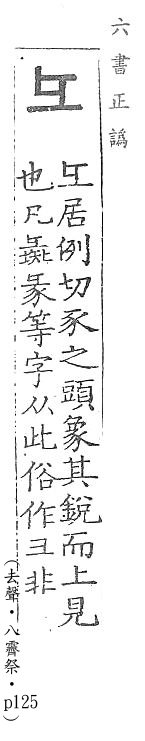 六書正譌
彑
彑居例切豕之頭象其銳而上見
也凡彘彖等字从此俗作彐非
(去聲・八霽祭・p125)